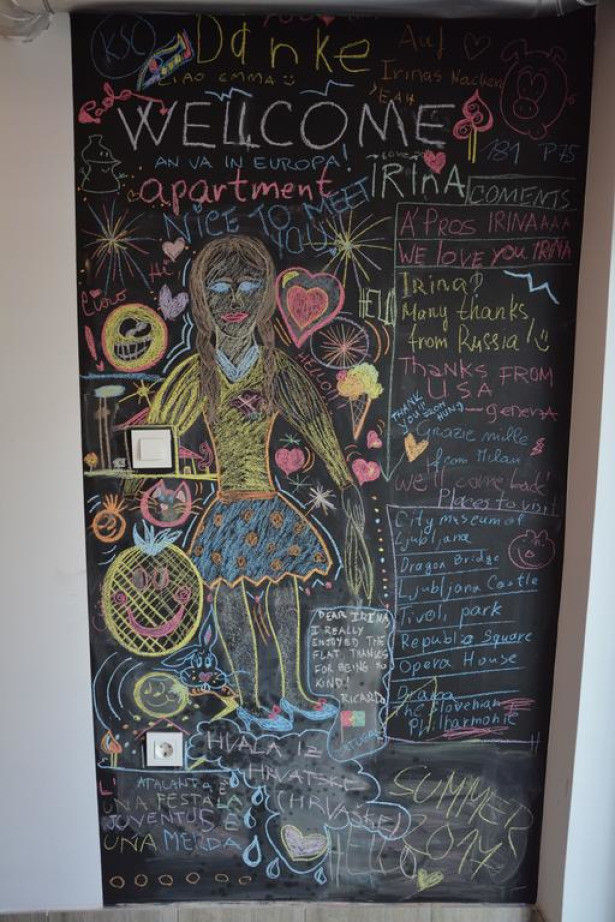 KSC
Danke
CIAO EMMA
Auf
Irinas Nacken
YEAH
WELLCOME
181 P75
AN VA IN EUROPA!
apartment
IRInA
COMENTS
NICE TO MEET
YOU
A' PROS IRINAAAA
WE LOVE YOU IRINA
Hi
Ciao
HELLO
HELLO
Irina!
Many thanks
from Russia!
THANKS FROM
USA
geneva
THANK
YOU!!! FROM
HUNG
Grazie mille
from Milan
We'll come back!
Places to visit
City museum of
Ljubljana
Dragon Bridge
Ljubljana Castle
Tivoli park
Republic Square
Opera House
Drama
The Slovenian
Philharmonic
DEAR IRINA
I REALLY
ENJOYED THE
FLAT. THANKS
FOR BEING SO
KIND!
RICARDO
HVALA IZ
HRVATSKE
(HRVASKE)
L' ATALANTA È
UNA FESTA LA
JUVENTUS È
UNA MERDA
SUMMER
2017
HELLO